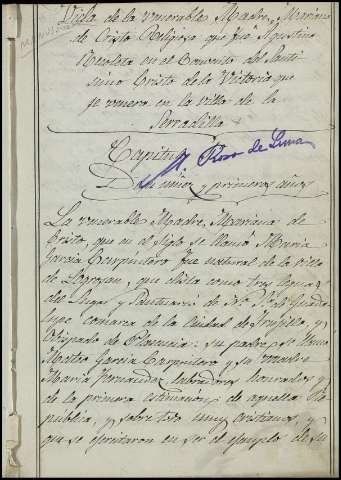 Vida de la venerable Madre, Mariana
de Cristo Religiosa que fué Agustina
Recoleta en el Convento del Santi
simo Cristo de la Victoria que
se venera en la villa de la
Serradilla
Capitulo
M. Roso de Luna
y primeros años
La venerable Madre, Mariana de
Cristo, que en el siglo se llamó Maria
Garcia Carpintero fue natural de la villa
de Logrosan, que dista como tres leguas
del Lugar y Santuario de Nª Sª de Guada
lupe comarca de la Ciudad de Trujillo, y
Obispado de Plasencia: su padre se llamó
Mateo Garcia Carpintero y su madre
Maria Hernandez, labradores honrados y
de la primera estimacion de aquella Re
pública, y sobre todo muy cristianos, y
que se egercitaron en ser el egemplo de su